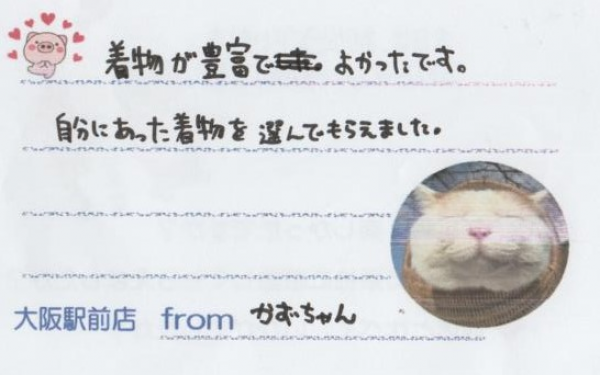 着物が豊富で よかったです。
自分にあった着物を選んでもらえました。
大阪駅前店 from かずちゃん